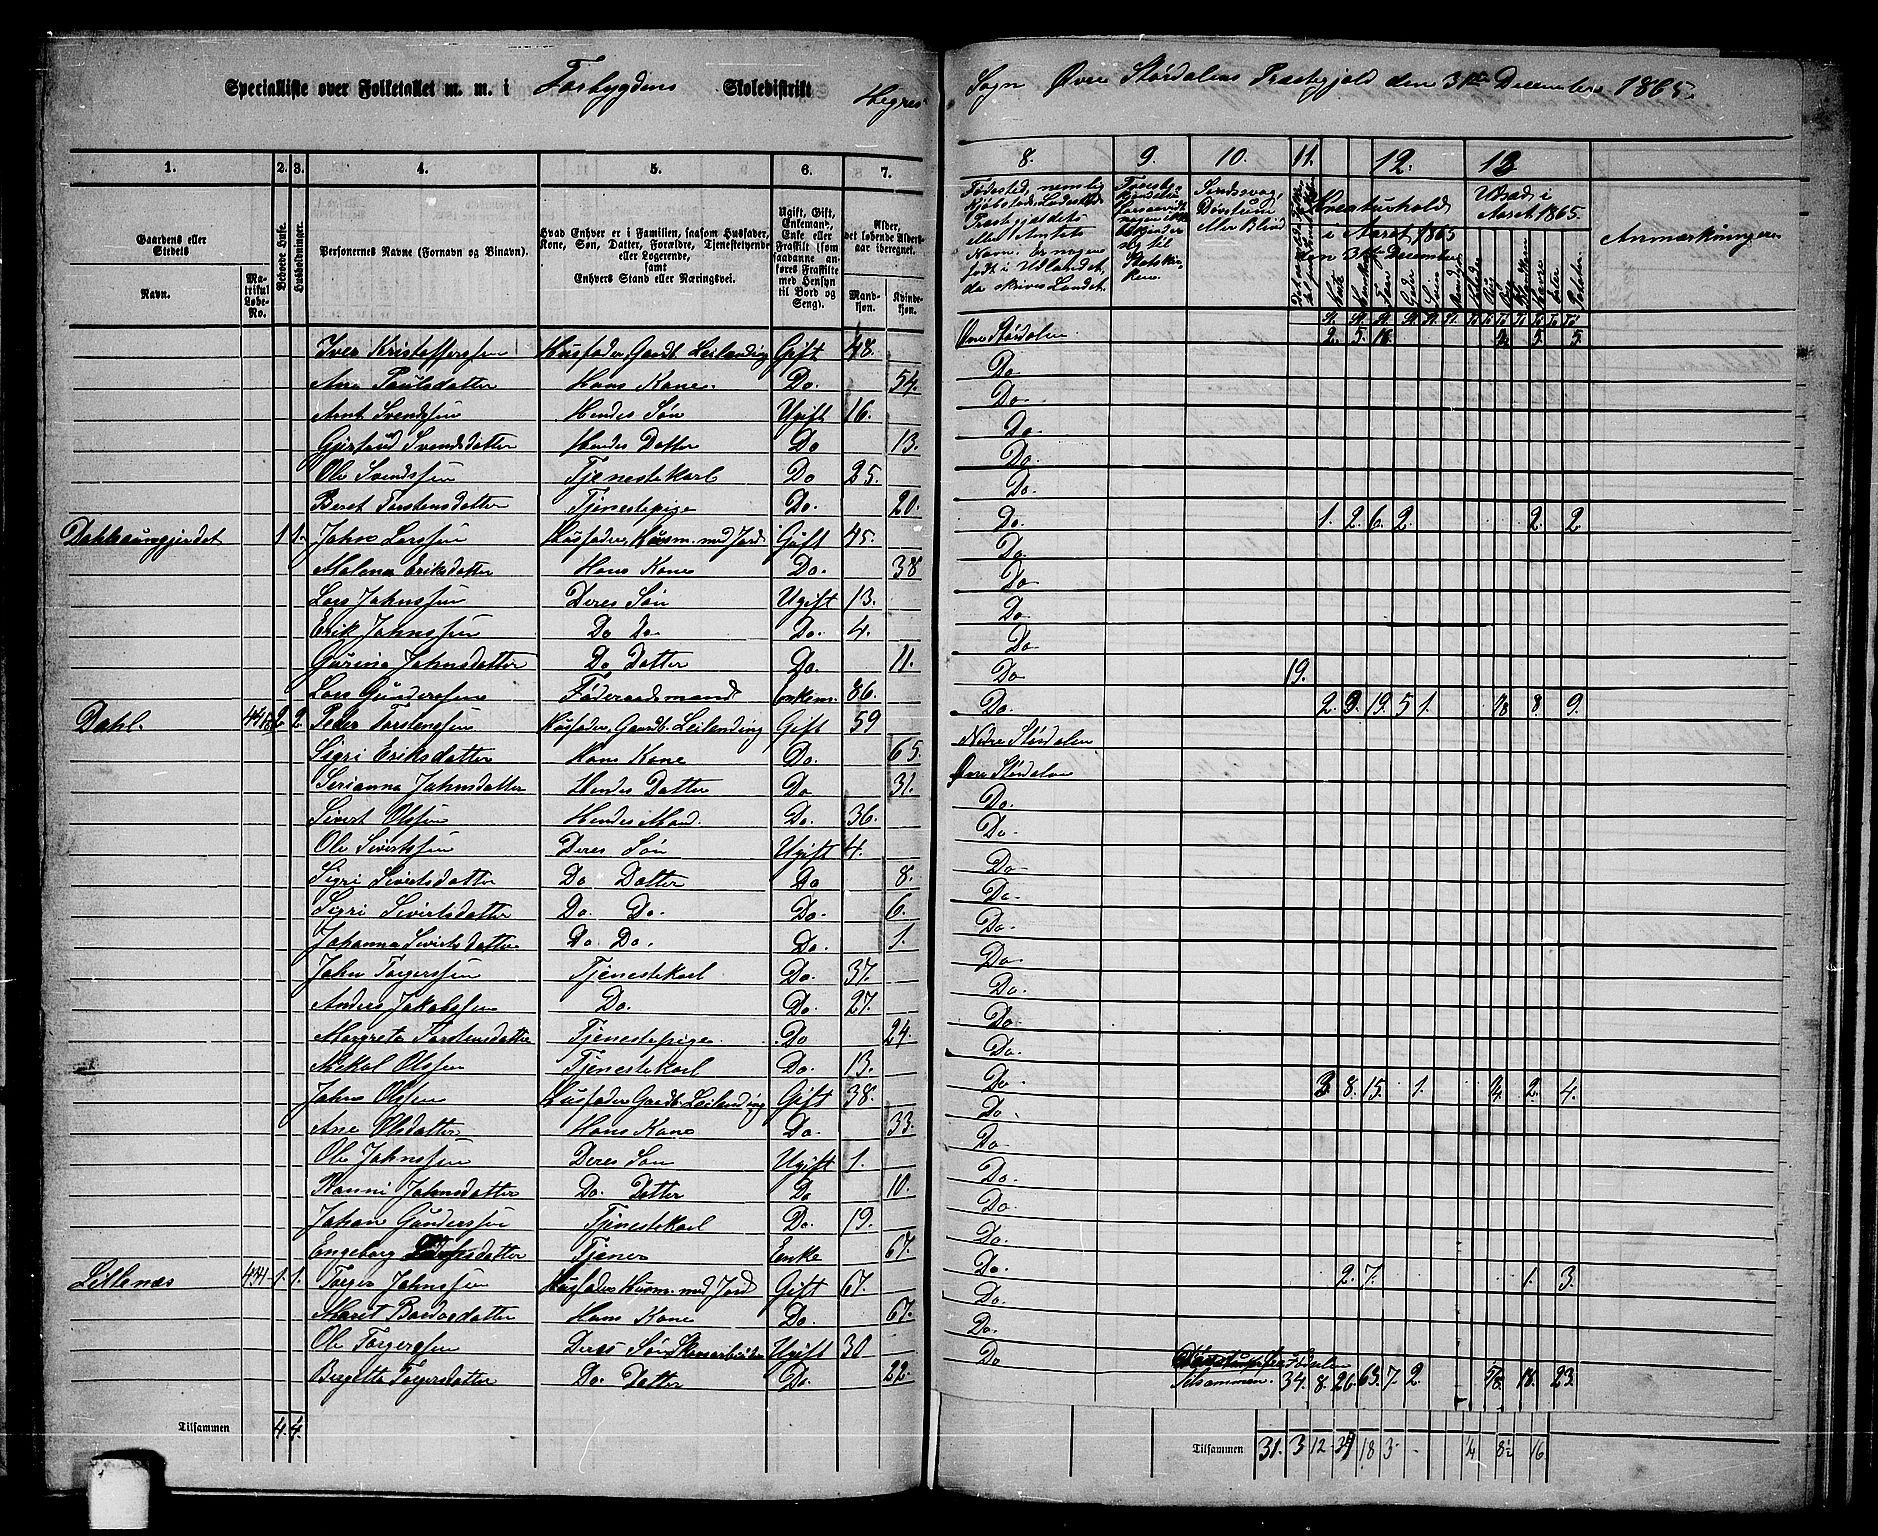 Specialliste over Folketallet m. m. i Forbygdens Skoledistrikt Hegres
Sogn Øvre Størdalens Præstegjeld den 31te December 1865.
1. 2. 3. 4. 5. 6. 7.
8. 9. 10. 11. 12. 13
Gaardens eller Stedets
Navn. Matrikul Løbe-No.
Beboede Huse.
Husholdninger.
Personernes Navne (Fornavn og Binavn).
Hvad Enhver er i Familien, saasom Husfader, Kone, Søn, Datter, Forældre, Tjenestetyende eller Logerende, samt Enhvers Stand eller Næringsvei.
Ugift, Gift, Enkemand, Enke eller Fraskilt (som saadanne anføres Fraskilte med Hensyn til Bord og Seng).
Alder, det løbende Aldersaar iberegnet.
Mandkjøn. Kvindekjøn.
Fødested, nemlig
Kreaturhold i Aaret 1865
den 31te December
Udsæd i Aaret 1865.
Anmærkninger
Iver Kristoffersen Husfader, Gaardb. Leilænding Gift 48. Øvre Størdalen 2. 5. 16.
Ane Paulsdatter Hans Kone. Do. 54. Do.
Arnt Svendsen Hendes Søn Ugift 16. Do.
Gjertrud Svendsdatter Hendes Datter Do 13. Do.
Ole Svendsen Tjenestekarl Do 25. Do.
Beret Torstensdatter Tjenestepige Do. 20. Do.
1. 1. John Larssen Husfader, Husm. med Jord Gift 45. Do. 1. 2. 6. 2. 2. 2
Malena Eriksdatter Hans Kone Do. 38 Do.
Lars Johnssen Deres Søn Ugift 13. Do
Erik Johnssen Do Do Do. 4. Do
Gurina Johnsdatter Do Datter Do. 11. Do
Lars Gunderssen Føderaadsmand Enkem. 86. Do 19.
Dahl. 2. 2. Peder Torstensen Husfader, Gaardb. Leilænding Gift 59 Do. 2. 9. 19. 5 1. 8. 9.
Sigri Eriksdatter Hans Kone Do. 65. Nedre Størdalen
Serianna Johnsdatter Hendes Datter Do 31. Øvre Størdalen
Sivert Olsen Hendes Mand. Do. 36. Do.
Ole Sivertssen Deres Søn Ugift 4. Do.
Sigri Sivertsdatter Do Datter Do 8. Do
Sigri Sivertsdatter Do. Do. Do. 6. Do.
Johanna Sivertsdatter Do. Do. Do. 1. Do.
John Torgerssen Tjenestekarl Do. 37. Do.
Anders Jakobsen Do. Do. 27. Do.
Margreta Torstensdatter Tjenestepige. Do 24. Do.
Mekal Olsen Tjenestekarl Do. 13. Do.
John Olsen Husfader Gaardb. Leilænding Gift 38. Do 3. 8. 15. 1. 2. 4.
Ane Olsdatter Hans Kone Do. 33. Do.
Ole Johnssen Deres Søn Ugift 1. Do.
Ranni Johnsdatter Do. Datter Do 10. Do.
Johan Gunderssen Tjenestekarl Do. 19. Do.
Engeborg Tjener Enke 67. Do.
Litlenæs 1. 1. Torger Johnssen Husfader Husm. med Jord Gift 67. Do. 2. 7. 1. 3.
Marit Hans Kone Do. 67. Do.
Ole Torgerssen Deres Søn Ugift 30 Do.
Bergitta Torgersdatter Do. Datter Do. 22. Do
Tilsammen. 34. 8. 26. 63. 7. 2. 18. 23.
Tilsammen 4. 4.
Tilsammen 31. 3 12 34 18 3 16